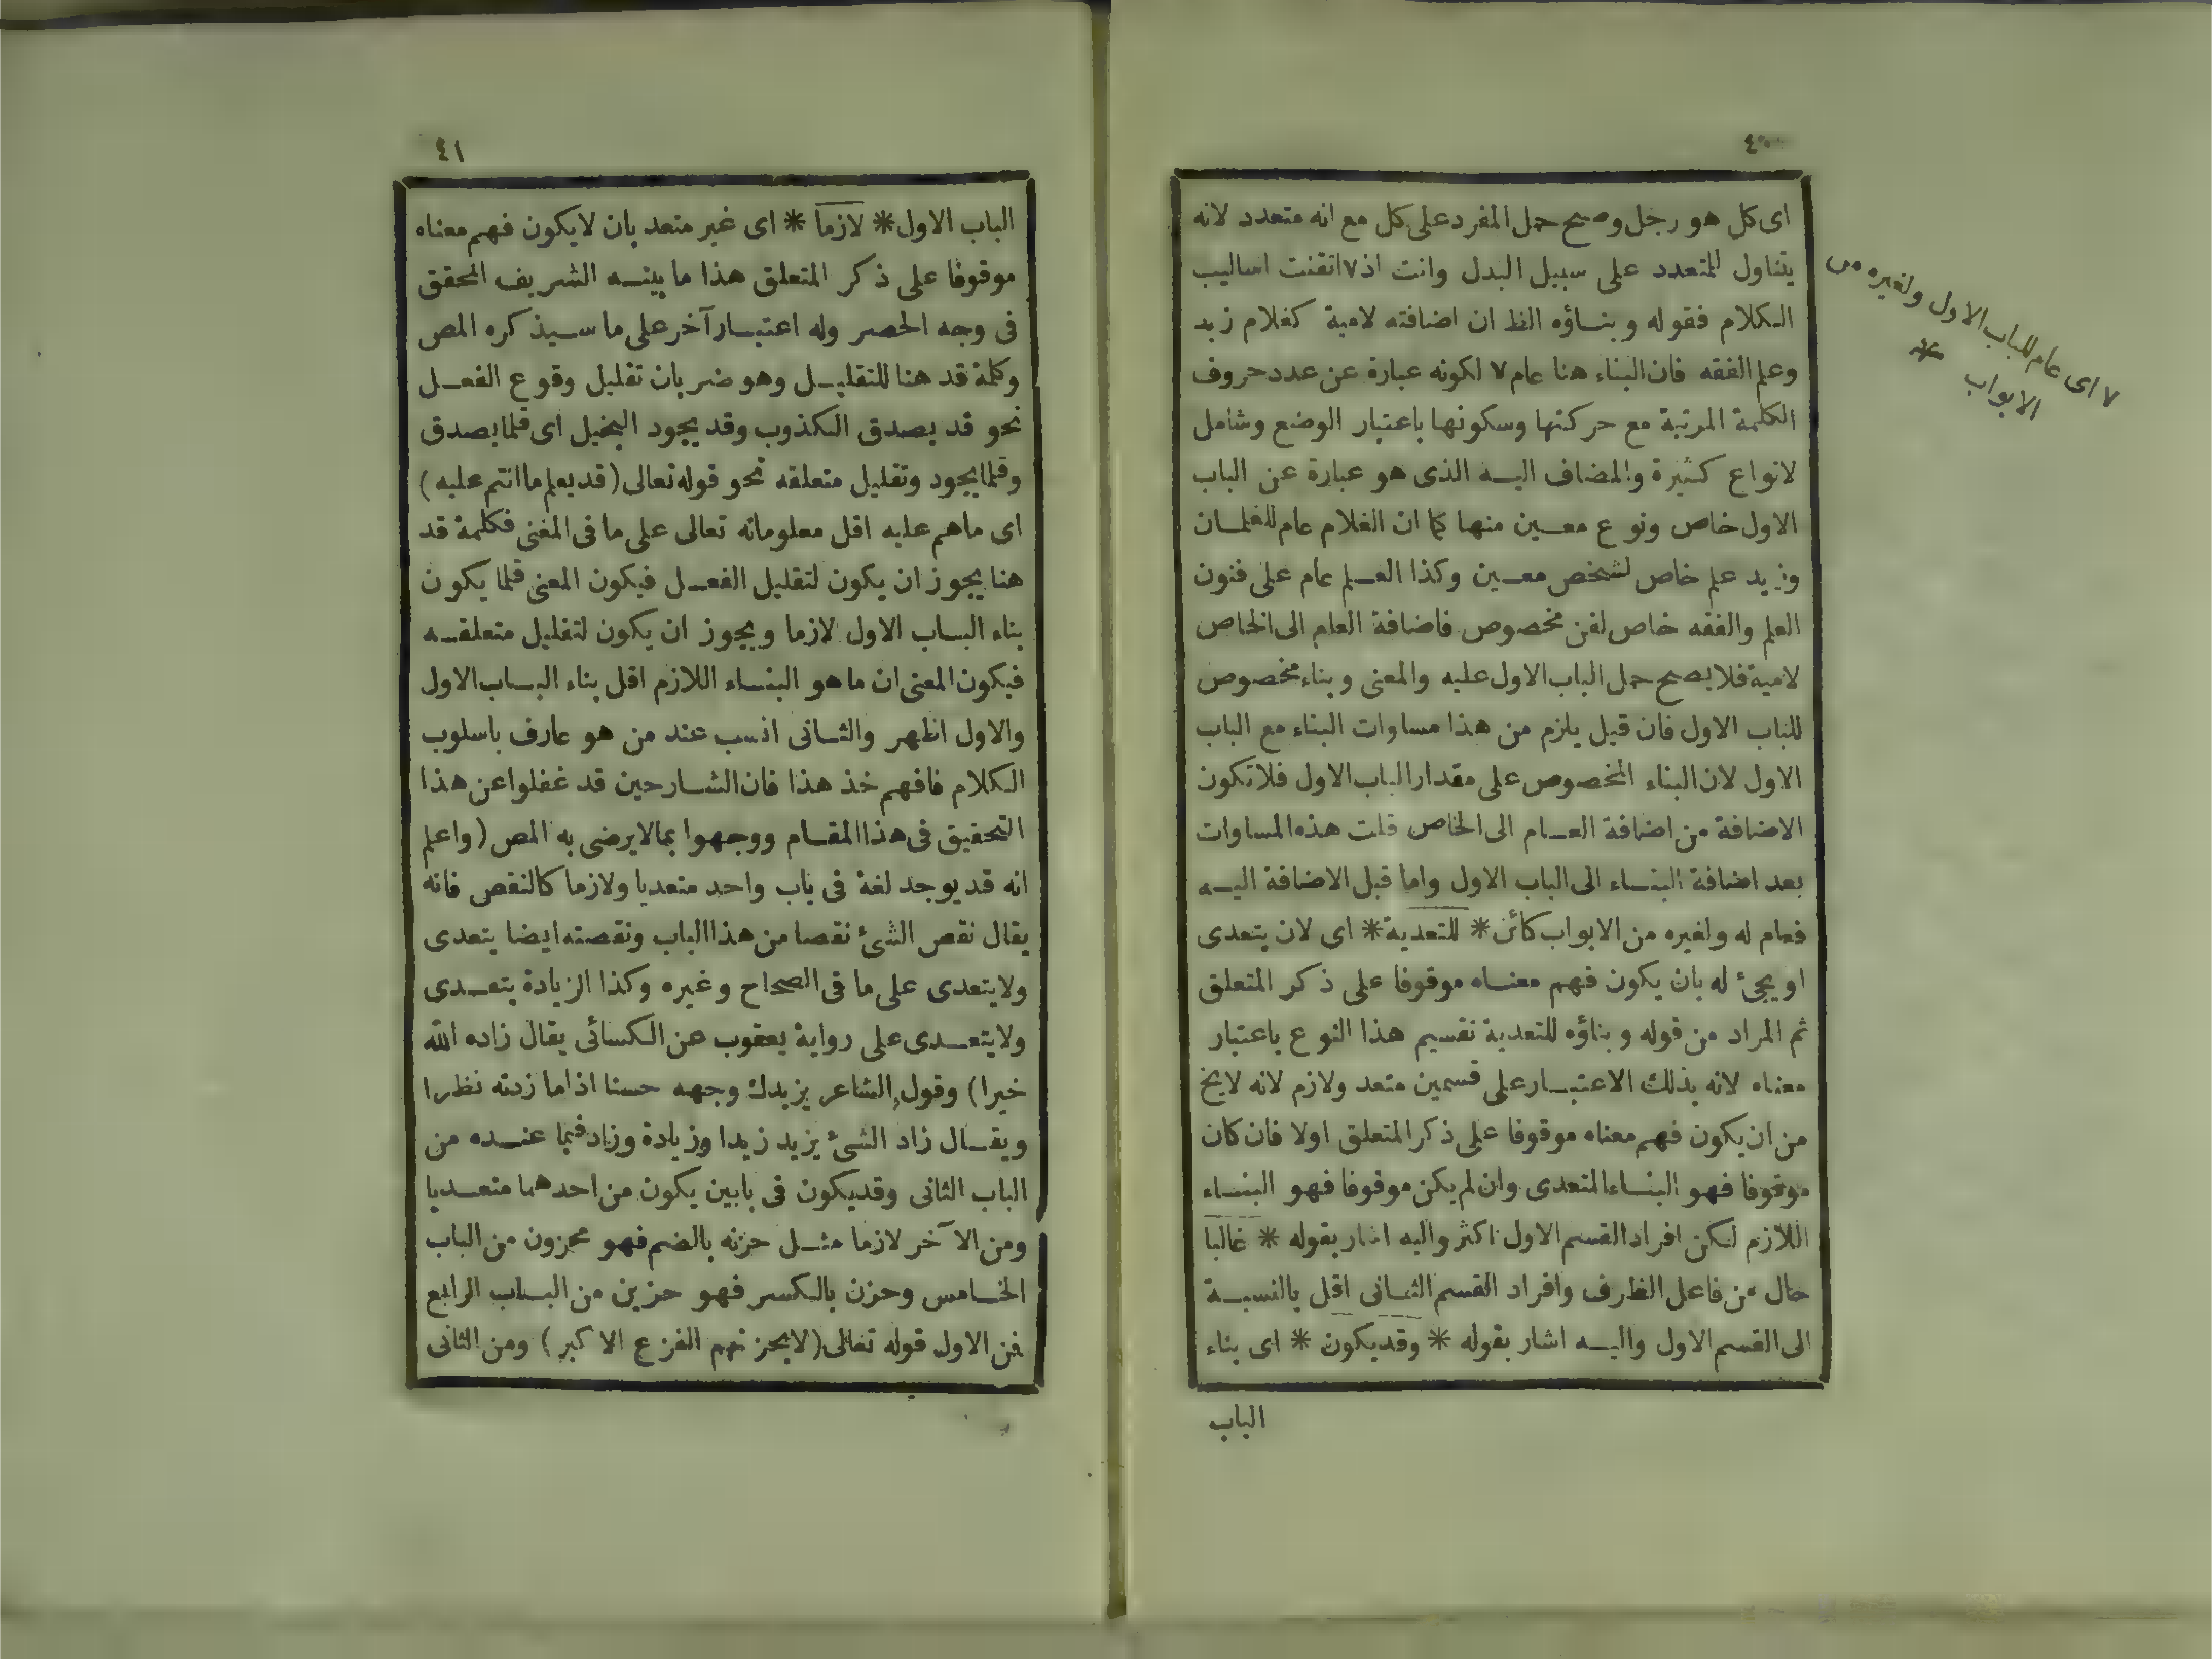 ٤٠
اى كل هو رجل وصح حمل المفرد على كل مع انه متعدد لانه
يتناول المتعدد على سبيل البدل وانت اذ٧اتقنت اساليب
الكلام فقوله وبناؤه الظ ان اضافته لامية كغلام زيد
وعلم الفقه فان البناء هنا عام ٧ لكونه عبارة عن عدد حروف
الكلمة المرتبة مع حركتها وسكونها باعتبار الوضع وشامل
لانواع كثيرة والمضاف اليه الذى هو عبارة عن الباب
الاول خاص ونوع معين منها كما ان الغلام عام للغلمان
وزيد علم خاص لشخص معين وكذا العلم عام على فنون
العلم والفقه خاص لفن مخصوص فاضافة العام الى الخاص
لامية فلا يصح حمل الباب الاول عليه والمعنى وبناء مخصوص
للباب الاول فان قيل يلزم من هذا مساوات البناء مع الباب
الاول لان البناء المخصوص على مقدار الباب الاول فلا تكون
الاضافة من اضافة العام الى الخاص قلت هذه المساوات
بعد اضافة البناء الى الباب الاول واما قبل الاضافة اليه
فعام له ولغيره من الابواب كائن * للتعدية * اى لان يتعدى
او يجئ له بان يكون فهم معناه موقوفا على ذكر المتعلق
ثم المراد من قوله وبناؤه للتعدية تقسيم هذا النوع باعتبار
معناه لانه بذلك الاعتبار على قسمين متعد ولازم لانه لا يخ
من ان يكون فهم معناه موقوفا على ذكر المتعلق اولا فان كان
موقوفا فهو البناء المتعدى وان لم يكن موقوفا فهو البناء
اللازم لكن افراد القسم الاول اكثر واليه اشار بقوله * غالبا
حال من فاعل الظرف وافراد القسم الثانى اقل بالنسبة
الى القسم الاول واليه اشار بقوله * وقد يكون * اى بناء
الباب
٧ اى عام للباب الاول ولغيره من
الابواب *
٤١
الباب الاول * لازما * اى غير متعد بان لا يكون فهم معناه
موقوفا على ذكر المتعلق هذا ما بينه الشريف المحقق
فى وجه الحصر وله اعتبار آخر على ما سيذكره المص
وكلمة قد هنا للتقليل وهو ضربان تقليل وقوع الفعل
نحو قد يصدق الكذوب وقد يجود البخيل اى قلما يصدق
وقلما يجود وتقليل متعلقه نحو قوله تعالى (قد يعلم ما انتم عليه)
اى ما هم عليه اقل معلوماته تعالى على ما فى المغنى فكلمة قد
هنا يجوز ان يكون لتقليل الفعل فيكون المعنى قلما يكون
بناء الباب الاول لازما ويجوز ان يكون لتقليل متعلقه
فيكون المعنى ان ما هو البناء اللازم اقل بناء الباب الاول
والاول اظهر والثانى انسب عند من هو عارف باسلوب
الكلام فافهم خذ هذا فان الشارحين قد غفلوا عن هذا
التحقيق فى هذا المقام ووجهوا بما لا يرضى به المص (واعلم
انه قد يوجد لغة فى باب واحد متعديا ولازما كالنقص فانه
يقال نقص الشئ نقصا من هذا الباب ونقصته ايضا يتعدى
ولا يتعدى على ما فى الصحاح وغيره وكذا الزيادة يتعدى
ولا يتعدى على رواية يعقوب عن الكسائى يقال زاده الله
خيرا) وقول الشاعر يزيدك وجهه حسنا اذا ما زدته نظرا
ويقال زاد الشئ يزيد زيدا وزيادة وزاد فيما عنده من
الباب الثانى وقد يكون فى بابين يكون من احدهما متعديا
ومن الآخر لازما مثل حزنه بالضم فهو محزون من الباب
الخامس وحزن بالكسر فهو حزين من الباب الرابع
فمن الاول قوله تعالى (لا يحزنهم الفزع الاكبر) ومن الثانى